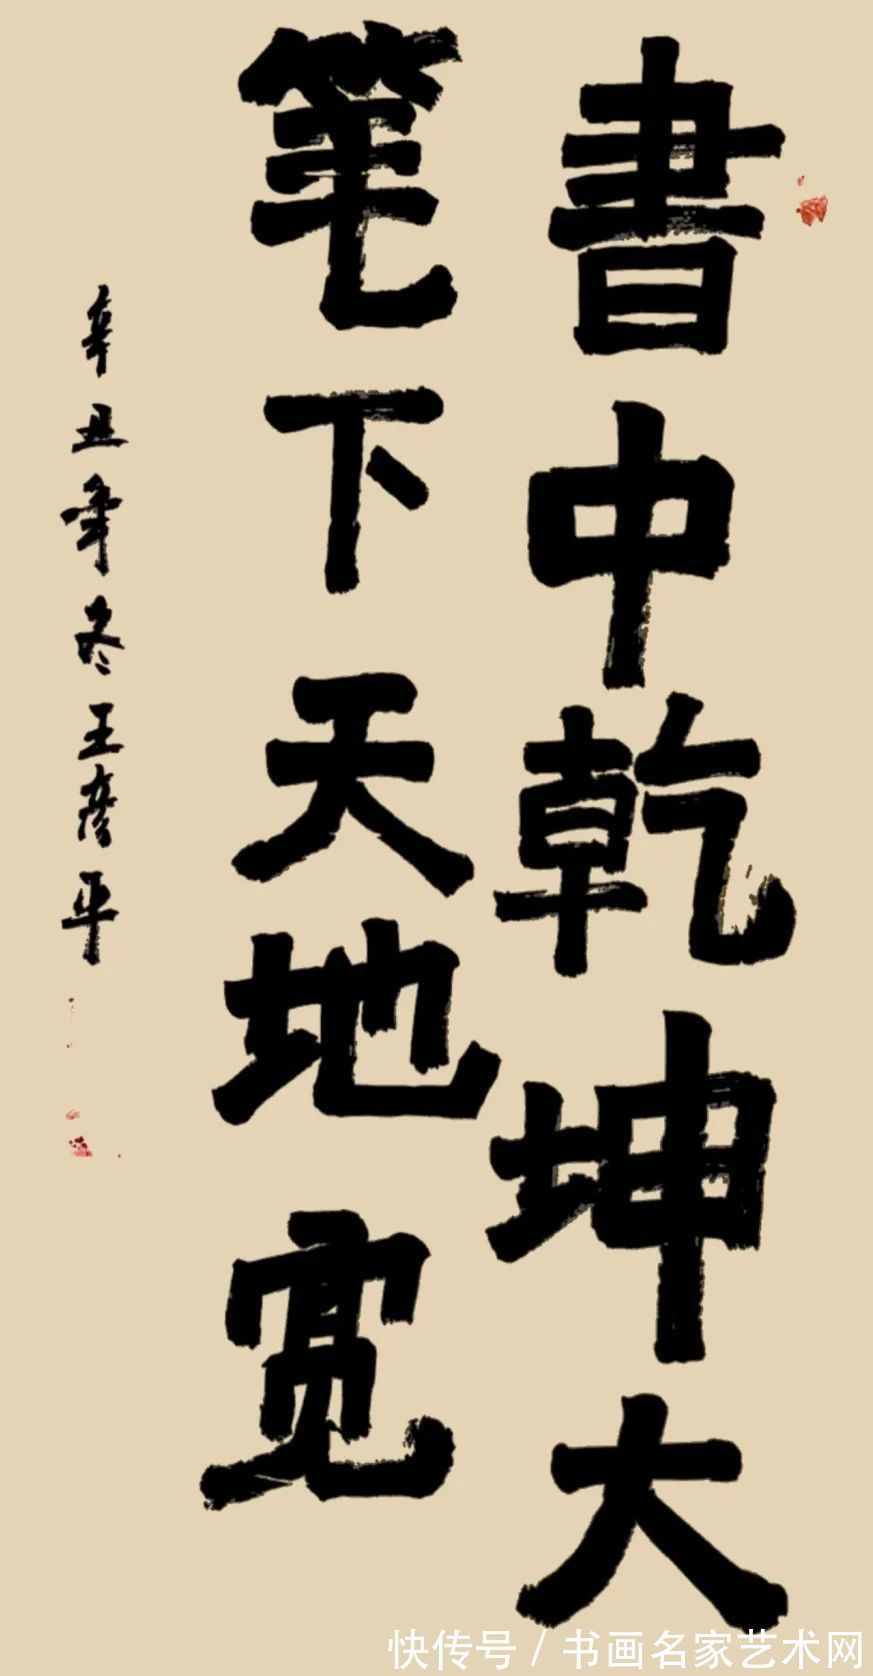 書中乾坤大
笔下天地宽
辛丑年冬王彦平
快传号/书画名家艺术网